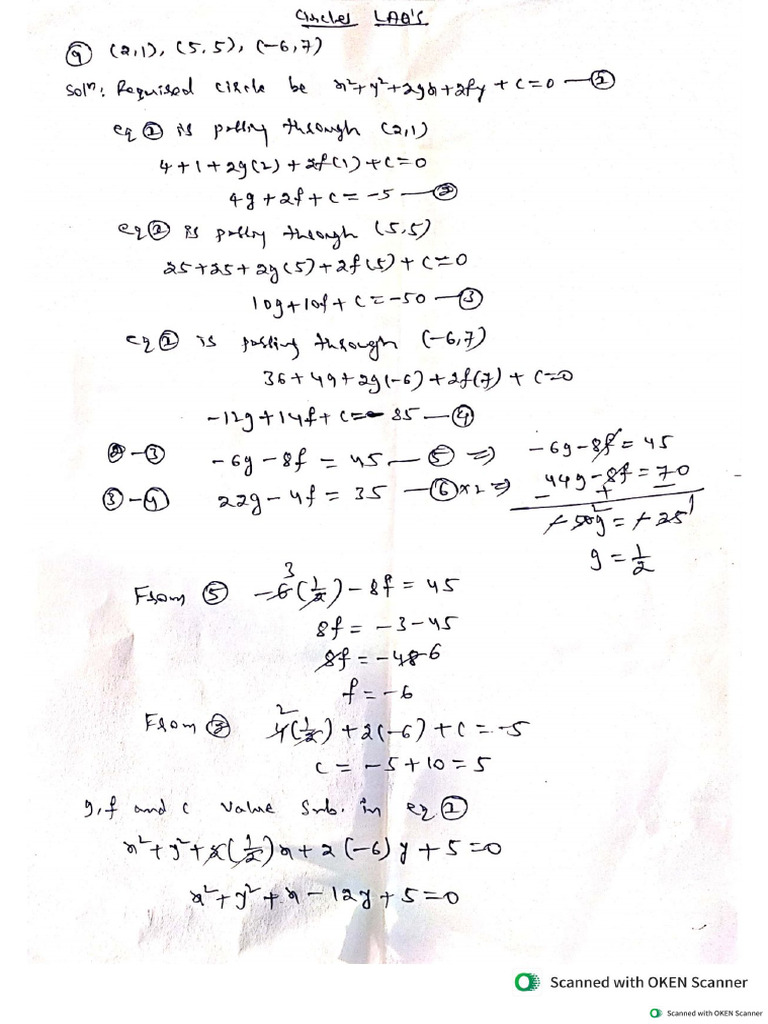 Circles LAQ's
9) (2,1), (5,5), (-6,7)
Solⁿ: Required circle be x²+y²+2gx+2fy+c=0 —①
eq ① is passing through (2,1)
4+1+2g(2)+2f(1)+c=0
4g+2f+c=-5 —②
eq ① is passing through (5,5)
25+25+2g(5)+2f(5)+c=0
10g+10f+c=-50 —③
eq ① is passing through (-6,7)
36+49+2g(-6)+2f(7)+c=0
-12g+14f+c=-85 —④
②-③ -6g-8f=45 —⑤ ⇒ -6g-8f=45
③-④ 22g-4f=35 —⑥×2 ⇒ 44g-8f=70
- + -
+50g=+25
g=1/2
From ⑤ -6(1/2)-8f=45
8f=-3-45
8f=-48 6
f=-6
From ② 4(1/2)+2(-6)+c=-5
c=-5+10=5
g,f and c value sub. in eq ①
x²+y²+2(1/2)x+2(-6)y+5=0
x²+y²+x-12y+5=0
Scanned with OKEN Scanner
Scanned with OKEN Scanner